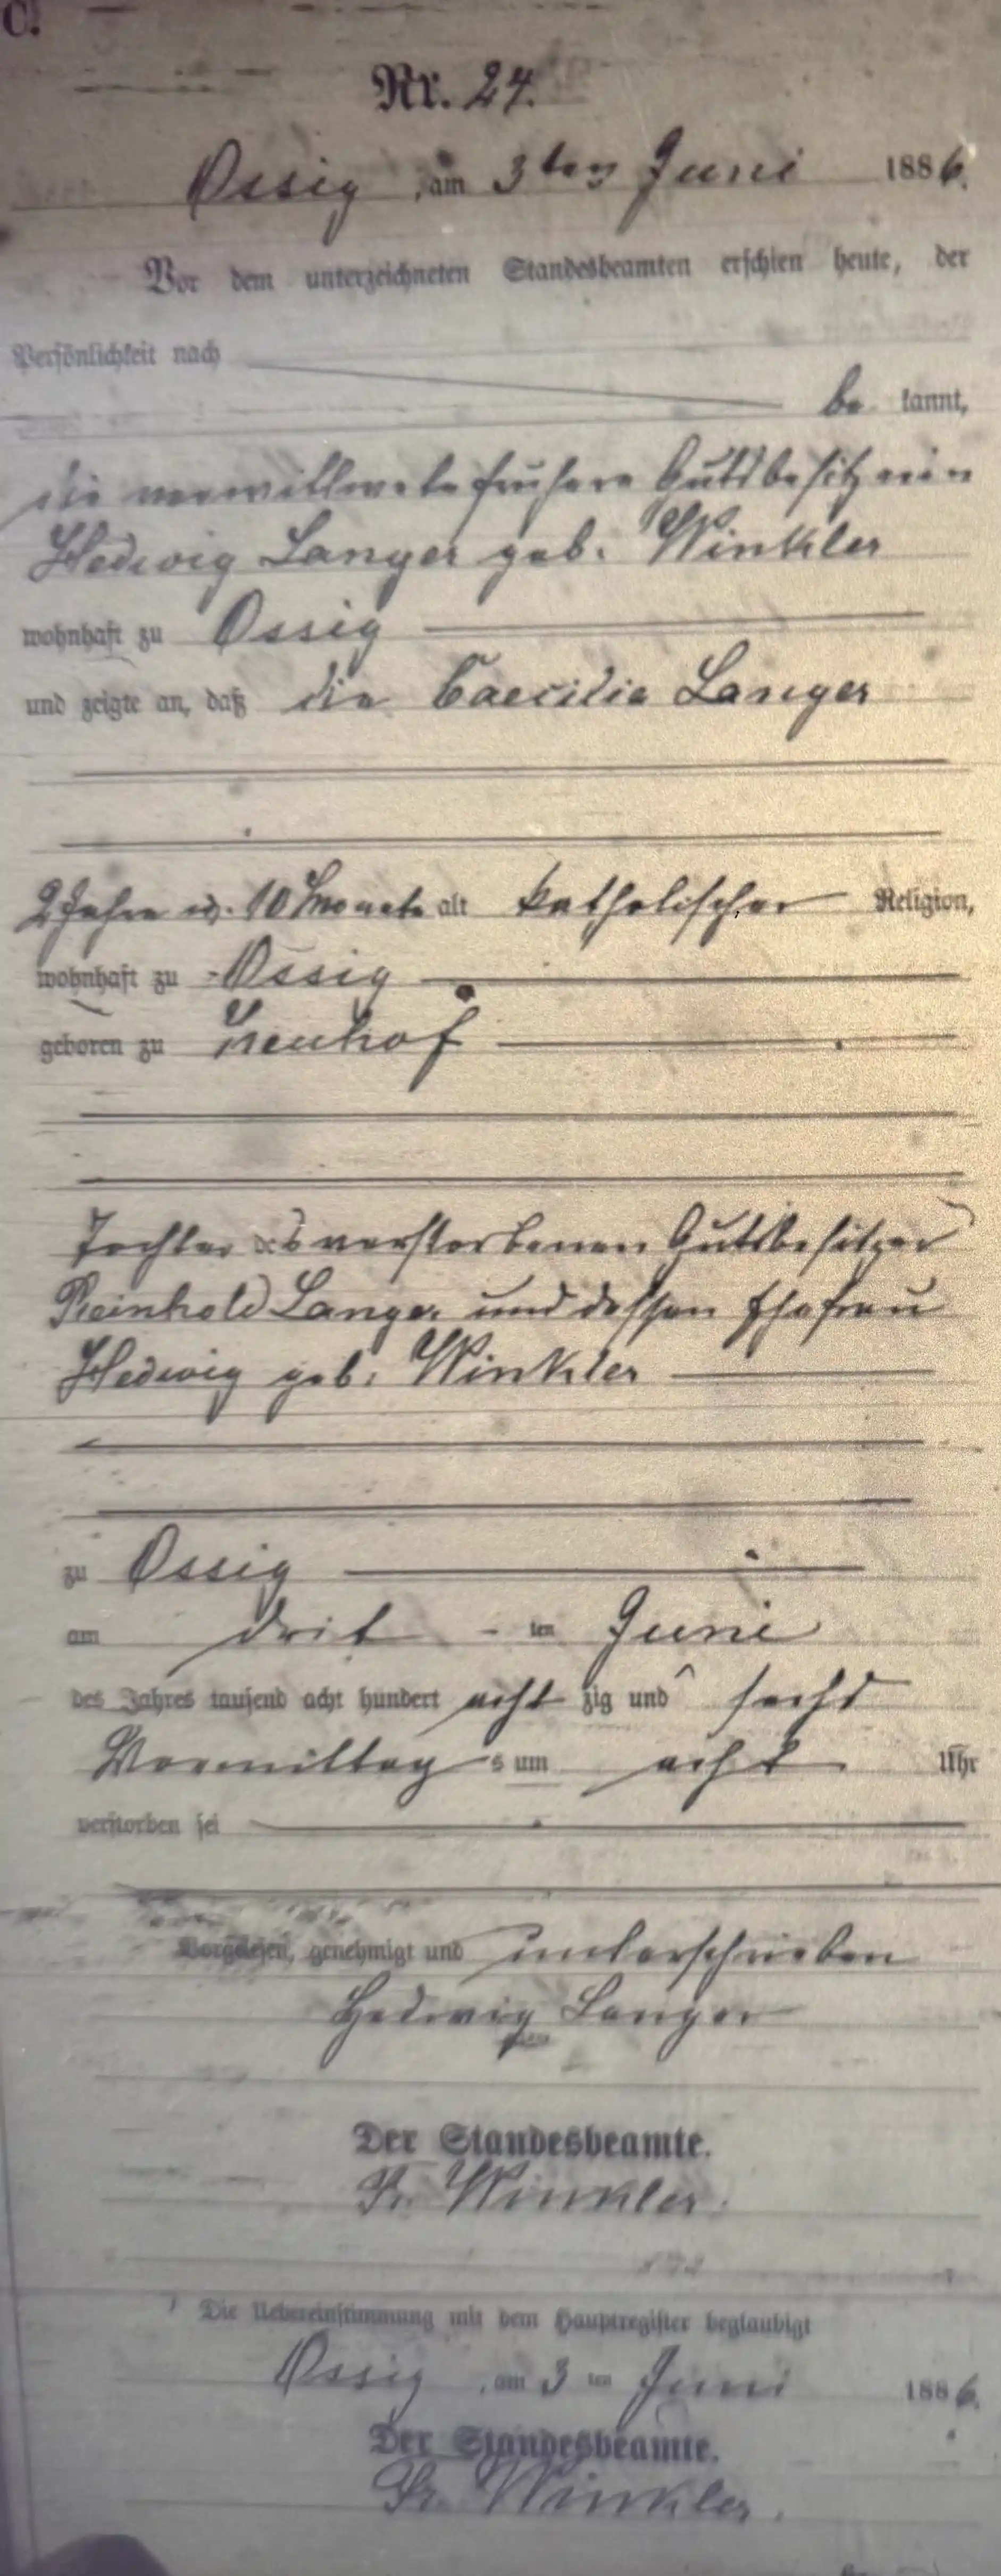 C.
Nr. 24.
Ossig, am 3ten Juni 1886.
Vor dem unterzeichneten Standesbeamten erschien heute, der
Persönlichkeit nach
be kannt,
die verwittwete frühere Gutsbesitzerin
Hedwig Langer geb. Winkler
wohnhaft zu Ossig
und zeigte an, daß die Caecilie Langer
2 Jahre u. 10 Monate alt katholischer Religion,
wohnhaft zu Ossig
geboren zu Neuhof
Tochter des verstorbenen Gutsbesitzer
Reinhold Langer und dessen Ehefrau
Hedwig geb. Winkler
zu Ossig
am drit - ten Juni
des Jahres tausend acht hundert acht zig und sechs
Vormittag s um acht Uhr
verstorben sei
Vorgelesen, genehmigt und unterschrieben
Hedwig Langer
Der Standesbeamte.
Fr. Winkler.
Die Uebereinstimmung mit dem Hauptregister beglaubigt
Ossig, am 3 ten Juni 1886.
Der Standesbeamte.
Fr. Winkler.